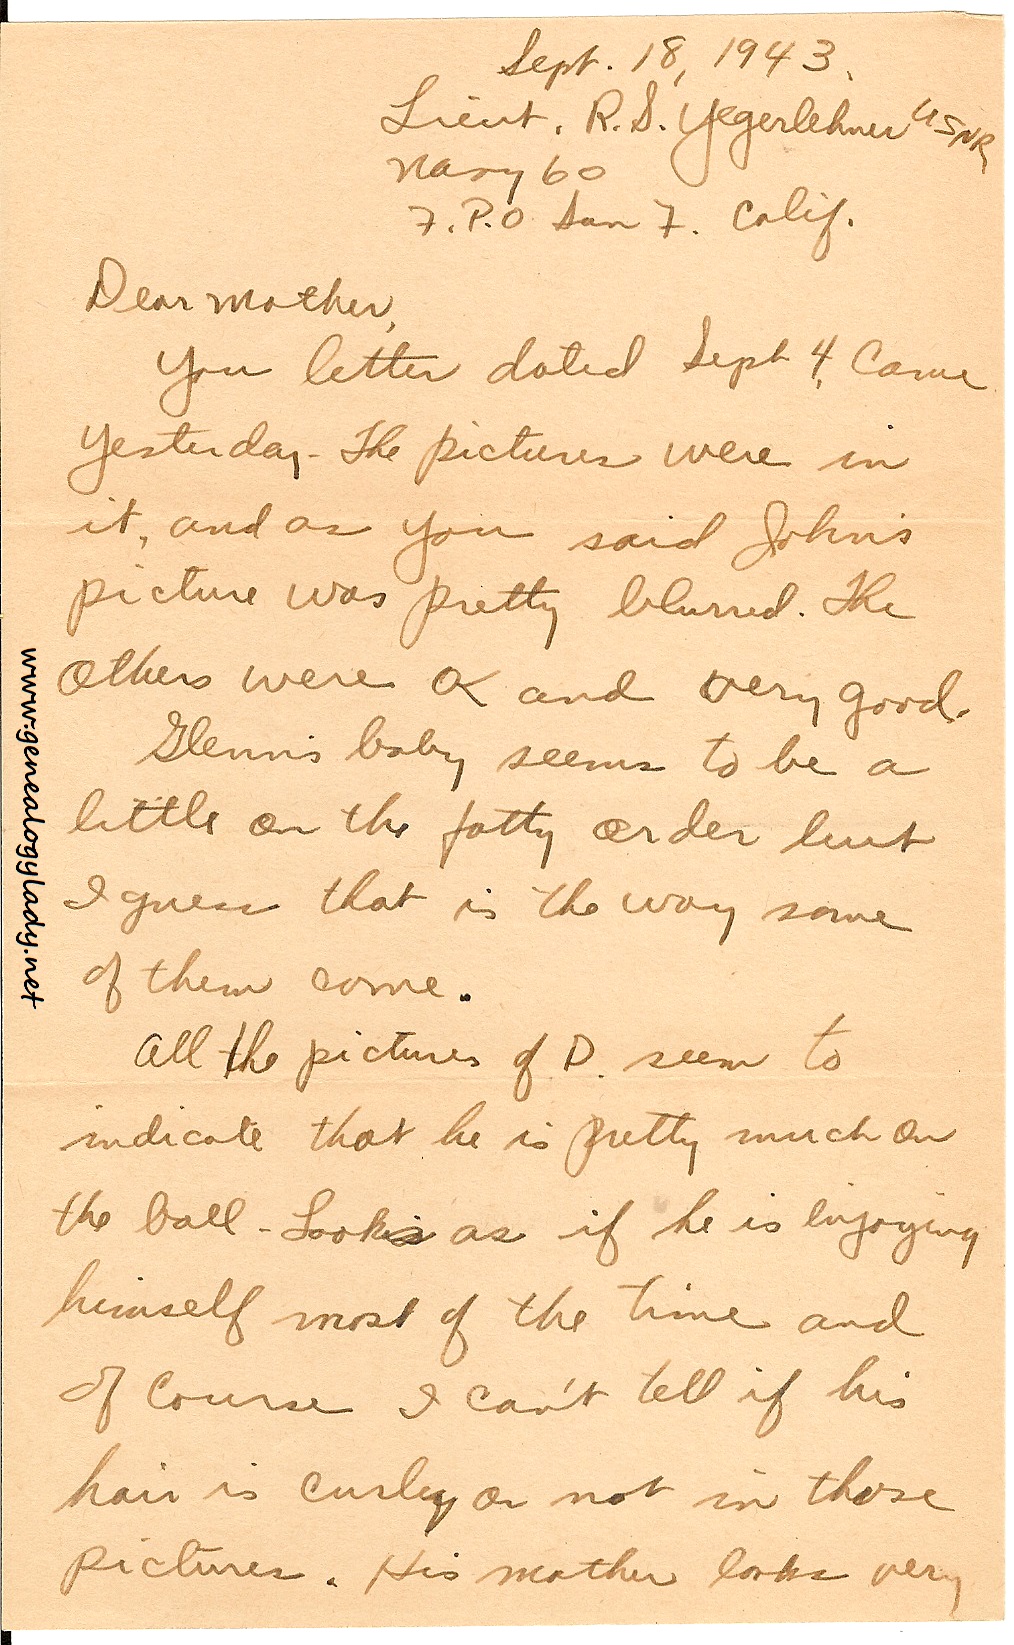 Sept. 18, 1943.
Lieut. R.S. Yegerlehner USNR
Navy 60
F.P.O San F. Calif.
Dear Mother,
You letter dated Sept 4, came
yesterday. The pictures were in
it, and as you said John's
picture was pretty blurred. The
others were OK and very good.
Glenn's baby seems to be a
little on the fatty order but
I guess that is the way some
of them come.
All the pictures of D. seem to
indicate that he is pretty much on
the ball - Looks as if he is enjoying
himself most of the time and
of course I can't tell if his
hair is curley or not in those
pictures. His mother looks very
www.genealogylady.net